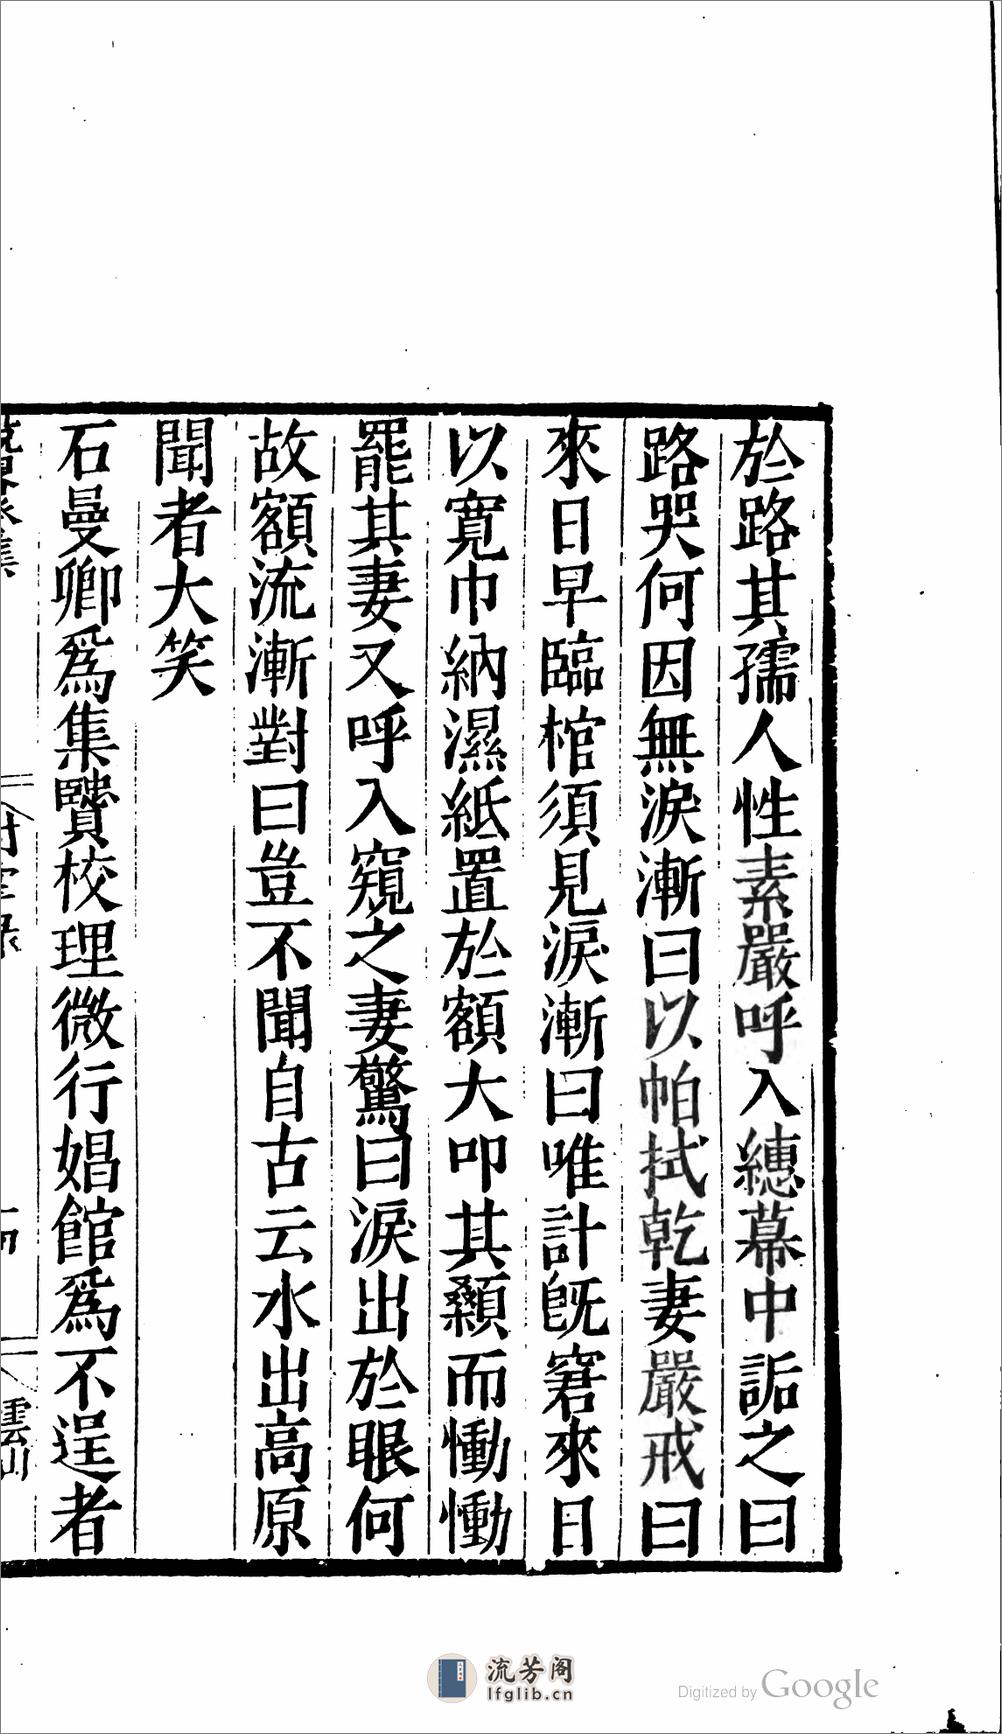 於路其孺人性素嚴呼入繐幕中詬之曰
路哭何因無淚漸曰以帕拭乾妻嚴戒曰
來日早臨棺須見淚漸曰唯計旣窘來日
以寬巾納濕紙置於額大叩其顙而慟慟
罷其妻又呼入窺之妻驚曰淚出於眼何
故額流漸對曰豈不聞自古云水出高原
聞者大笑
石曼卿爲集賢校理微行娼館爲不逞者
流芳阁
lfglib.cn
Digitized by Google